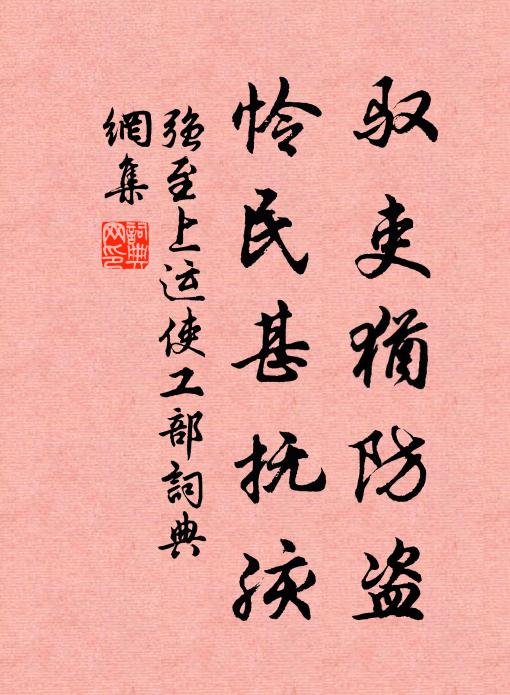 驭吏猶防盗
怜民甚抚孩
强至上运使工部詞典
網集
詞典网印